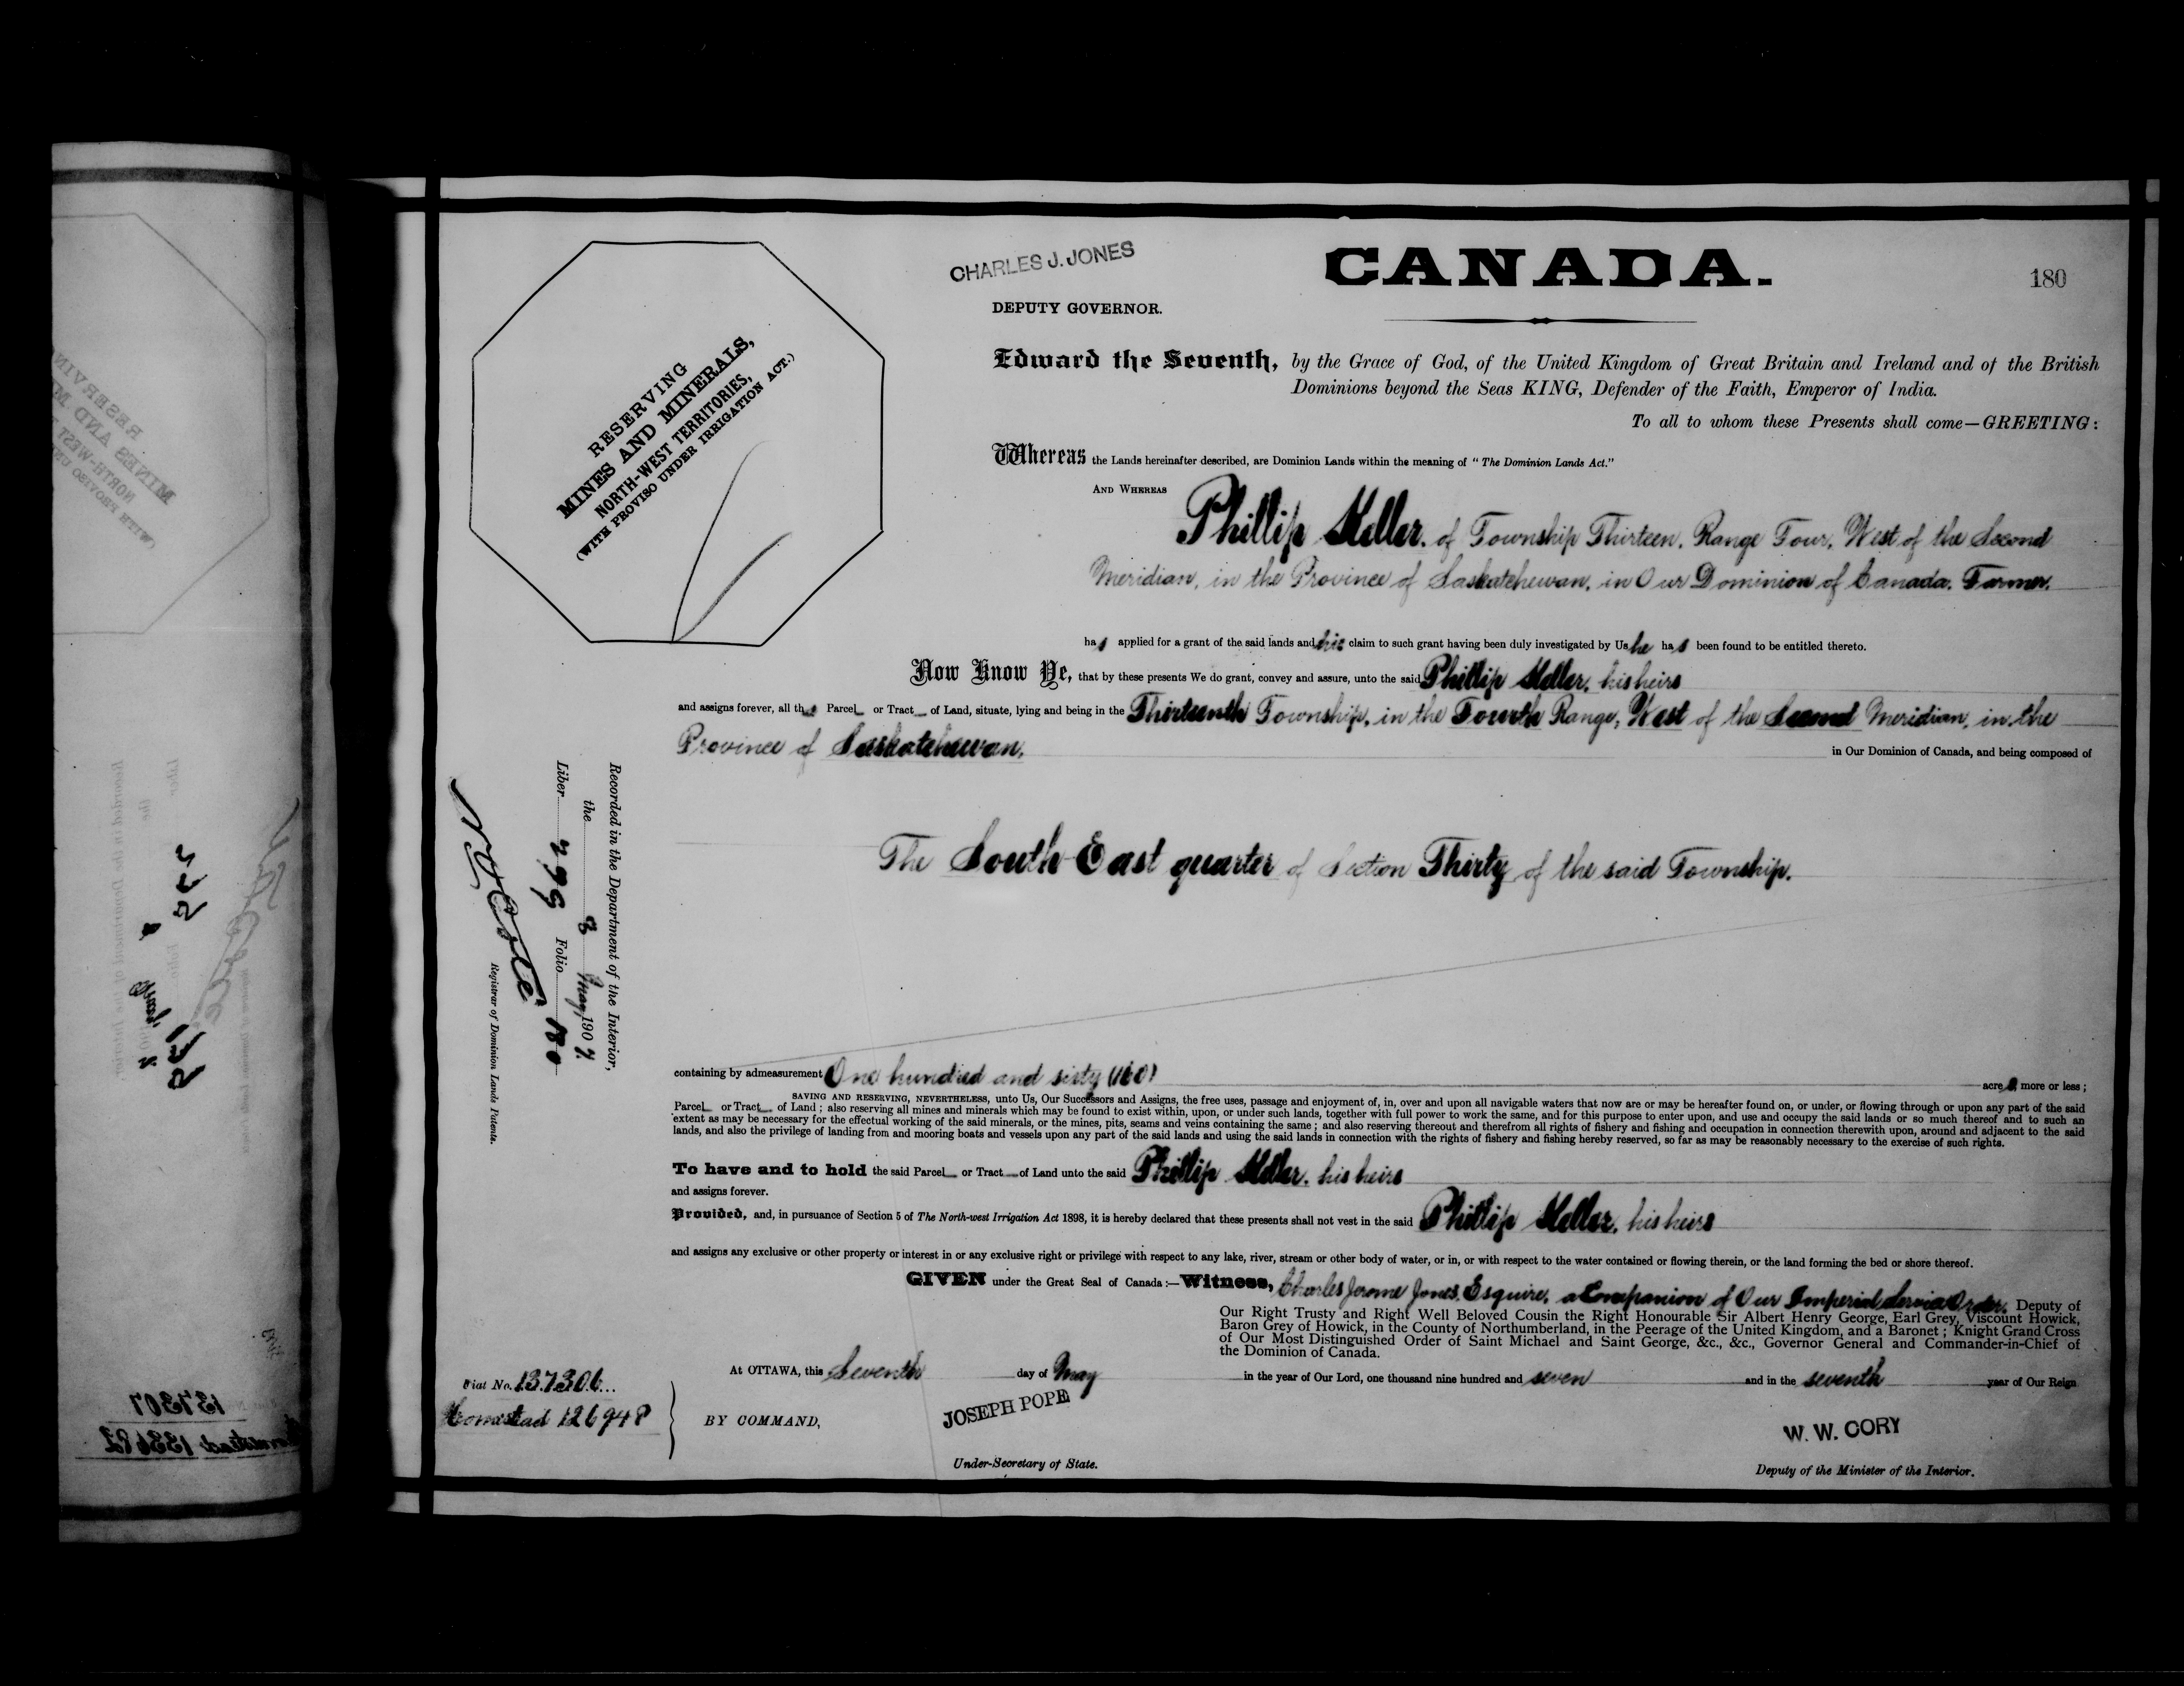 CHARLES J. JONES
DEPUTY GOVERNOR.
CANADA.
180
RESERVING
MINES AND MINERALS,
NORTH-WEST TERRITORIES,
(WITH PROVISO UNDER IRRIGATION ACT.)
Edward the Seventh, by the Grace of God, of the United Kingdom of Great Britain and Ireland and of the British
Dominions beyond the Seas KING, Defender of the Faith, Emperor of India.
To all to whom these Presents shall come—GREETING:
Whereas the Lands hereinafter described, are Dominion Lands within the meaning of "The Dominion Lands Act."
AND WHEREAS
Phillip Keller, of Township Thirteen, Range Four, West of the Second
Meridian, in the Province of Saskatchewan, in Our Dominion of Canada, Farmer,
has applied for a grant of the said lands and his claim to such grant having been duly investigated by Us he has been found to be entitled thereto.
Now Know Ye, that by these presents We do grant, convey and assure, unto the said Phillip Keller, his heirs
and assigns forever, all that Parcel or Tract of Land, situate, lying and being in the Thirteenth Township, in the Fourth Range, West of the Second Meridian, in the
Province of Saskatchewan, in Our Dominion of Canada, and being composed of
The South East quarter of Section Thirty of the said Township.
Recorded in the Department of the Interior,
the 8 May, 1907.
Liber 296 Folio 180
N O Coté
Registrar of Dominion Lands Patents.
containing by admeasurement One hundred and sixty (160) acres more or less;
SAVING AND RESERVING, NEVERTHELESS, unto Us, Our Successors and Assigns, the free uses, passage and enjoyment of, in, over and upon all navigable waters that now are or may be hereafter found on, or under, or flowing through or upon any part of the said
Parcel or Tract of Land; also reserving all mines and minerals which may be found to exist within, upon, or under such lands, together with full power to work the same, and for this purpose to enter upon, and use and occupy the said lands or so much thereof and to such an
extent as may be necessary for the effectual working of the said minerals, or the mines, pits, seams and veins containing the same; and also reserving thereout and therefrom all rights of fishery and fishing and occupation in connection therewith upon, around and adjacent to the said
lands, and also the privilege of landing from and mooring boats and vessels upon any part of the said lands and using the said lands in connection with the rights of fishery and fishing hereby reserved, so far as may be reasonably necessary to the exercise of such rights.
To have and to hold the said Parcel or Tract of Land unto the said Phillip Keller, his heirs
and assigns forever.
Provided, and, in pursuance of Section 5 of The North-west Irrigation Act 1898, it is hereby declared that these presents shall not vest in the said Phillip Keller, his heirs
and assigns any exclusive or other property or interest in or any exclusive right or privilege with respect to any lake, river, stream or other body of water, or in, or with respect to the water contained or flowing therein, or the land forming the bed or shore thereof.
GIVEN under the Great Seal of Canada:—Witness, Charles Jerome Jones, Esquire, a Companion of Our Imperial Service Order, Deputy of
Our Right Trusty and Right Well Beloved Cousin the Right Honourable Sir Albert Henry George, Earl Grey, Viscount Howick,
Baron Grey of Howick, in the County of Northumberland, in the Peerage of the United Kingdom, and a Baronet; Knight Grand Cross
of Our Most Distinguished Order of Saint Michael and Saint George, &c., &c., Governor General and Commander-in-Chief of
the Dominion of Canada.
At OTTAWA, this Seventh day of May in the year of Our Lord, one thousand nine hundred and seven and in the seventh year of Our Reign
Fiat No. 137306
Homestead 126948
BY COMMAND,
JOSEPH POPE
Under-Secretary of State.
W. W. CORY
Deputy of the Minister of the Interior.